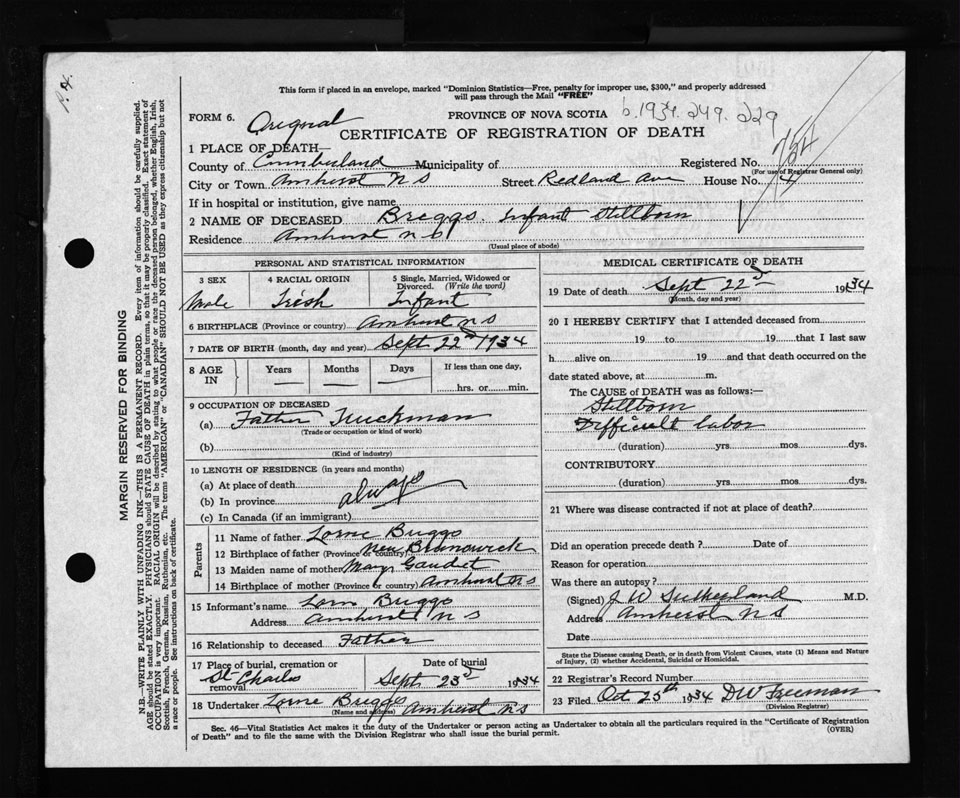 This form if placed in an envelope, marked "Dominion Statistics—Free, penalty for improper use, $300," and properly addressed
will pass through the Mail "FREE"
FORM 6. Original PROVINCE OF NOVA SCOTIA 6.1934.249. 229
CERTIFICATE OF REGISTRATION OF DEATH
1 PLACE OF DEATH—
County of Cumberland Municipality of Registered No.
(For use of Registrar General only)
City or Town Amherst N S Street Redland Ave House No.
If in hospital or institution, give name
2 NAME OF DECEASED Briggs. Infant Stillborn
Residence Amherst N S
(Usual place of abode)
PERSONAL AND STATISTICAL INFORMATION
3 SEX 4 RACIAL ORIGIN 5 Single, Married, Widowed or Divorced. (Write the word)
Male Irish Infant
6 BIRTHPLACE (Province or country) Amherst N S
7 DATE OF BIRTH (month, day and year) Sept 22nd 1934
8 AGE IN Years Months Days If less than one day,
hrs. or min.
9 OCCUPATION OF DECEASED
(a) Father Truckman
(Trade or occupation or kind of work)
(b)
(Kind of industry)
10 LENGTH OF RESIDENCE (in years and months)
(a) At place of death
(b) In province always
(c) In Canada (if an immigrant)
Parents
11 Name of father Lorne Briggs
12 Birthplace of father (Province or country) New Brunswick
13 Maiden name of mother Mary Gaudet
14 Birthplace of mother (Province or country) Amherst N S
15 Informant's name Lorn Briggs
Address Amherst N S
16 Relationship to deceased Father
17 Place of burial, cremation or removal Date of burial
St Charles Sept 23d 1934
18 Undertaker Lorne Briggs Amherst N S
(Name and address)
MEDICAL CERTIFICATE OF DEATH
19 Date of death Sept 22d 1934
(Month, day and year)
20 I HEREBY CERTIFY that I attended deceased from
19 to 19 that I last saw
h alive on 19 and that death occurred on the
date stated above, at m.
The CAUSE OF DEATH was as follows:—
Stillborn
Difficult labor
(duration) yrs mos dys.
CONTRIBUTORY
(duration) yrs mos dys.
21 Where was disease contracted if not at place of death?
Did an operation precede death ? Date of
Reason for operation
Was there an autopsy ?
(Signed) J W Sutherland M.D.
Address Amherst N S
Date
State the Disease causing Death, or in death from Violent Causes, state (1) Means and Nature
of Injury, (2) whether Accidental, Suicidal or Homicidal.
22 Registrar's Record Number
23 Filed Oct 25th 1934 D W Freeman
(Division Registrar)
Sec. 46—Vital Statistics Act makes it the duty of the Undertaker or person acting as Undertaker to obtain all the particulars required in the "Certificate of Registration
of Death" and to file the same with the Division Registrar who shall issue the burial permit. (OVER)
MARGIN RESERVED FOR BINDING
N.B.—WRITE PLAINLY WITH UNFADING INK—THIS IS A PERMANENT RECORD. Every item of information should be carefully supplied.
AGE should be stated EXACTLY. PHYSICIANS should STATE CAUSE OF DEATH in plain terms, so that it may be properly classified. Exact statement of
OCCUPATION is very important. RACIAL ORIGIN will be described by stating to what people or race the deceased person belonged, whether English, Irish,
Scottish, French, German, Russian, Ruthenian, etc. The terms "AMERICAN" or "CANADIAN" SHOULD NOT BE USED as they express citizenship but not
a race or people. See instructions on back of certificate.